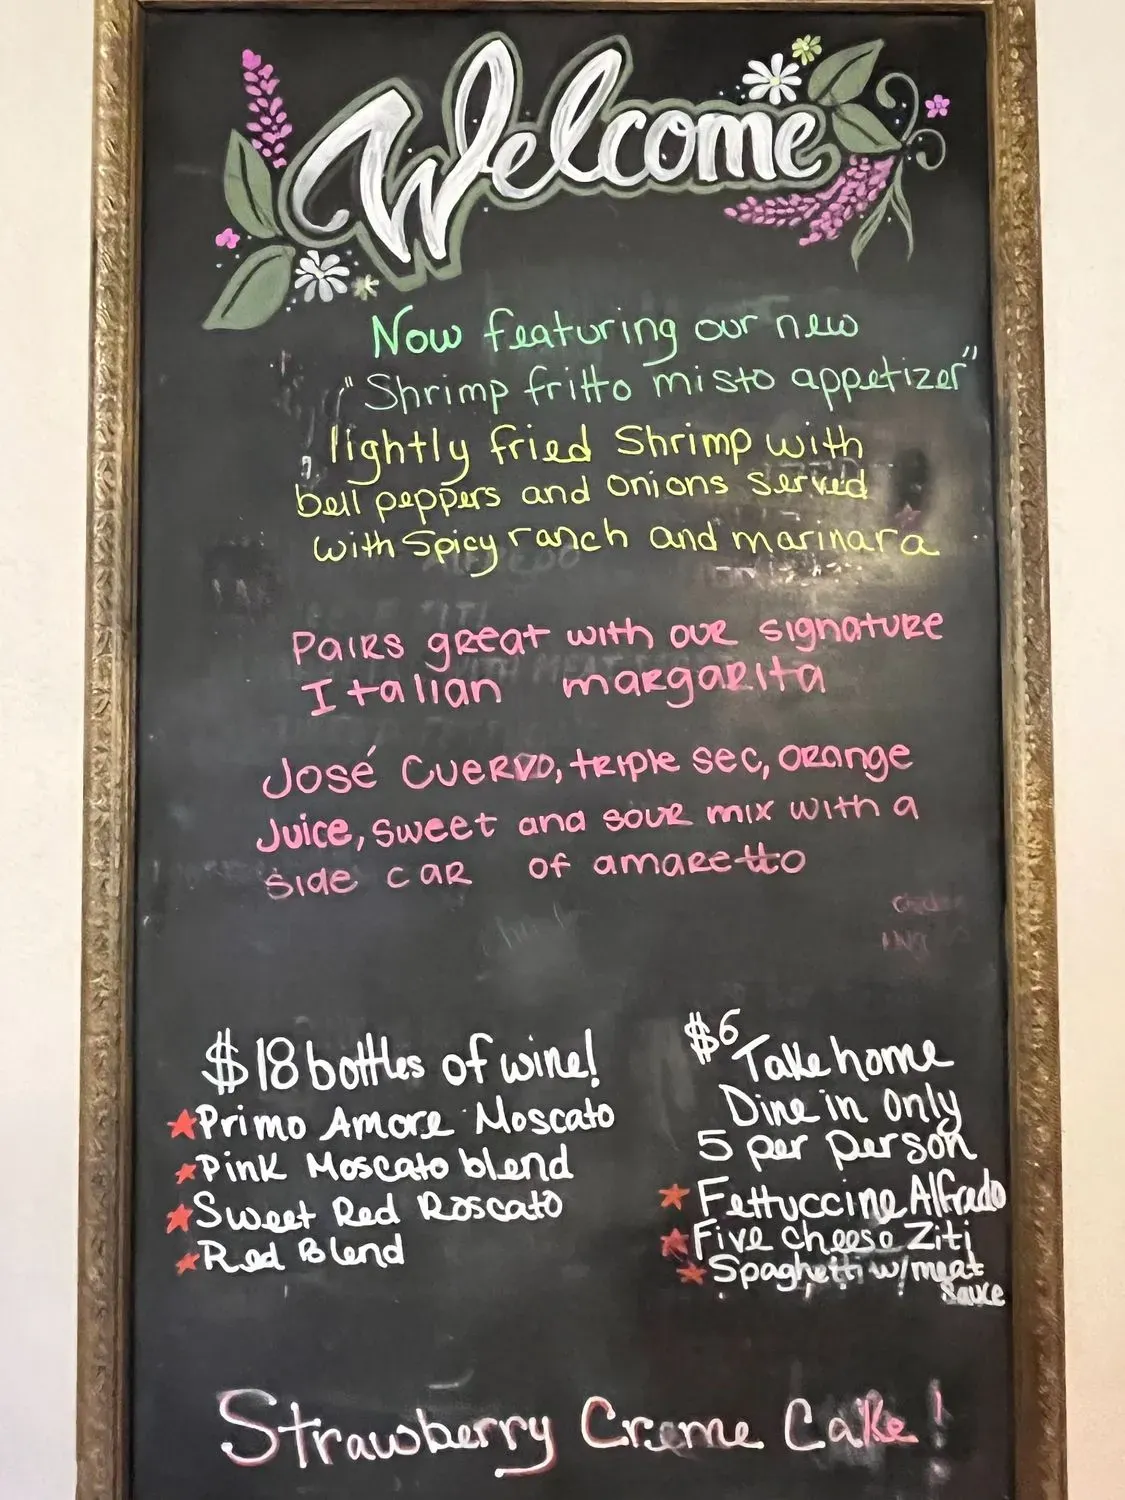 Welcome
Now featuring our new
"Shrimp fritto misto appetizer"
lightly fried Shrimp with
bell peppers and onions served
with Spicy ranch and marinara
Pairs great with our signature
Italian margarita
José Cuervo, triple sec, orange
Juice, sweet and sour mix with a
side car of amaretto
$18 bottles of wine!
Primo Amore Moscato
Pink Moscato blend
Sweet Red Roscato
Red Blend
$6 Take home
Dine in Only
5 per person
Fettuccine Alfredo
Five Cheese Ziti
Spaghetti w/meat
sauce
Strawberry Creme Cake!